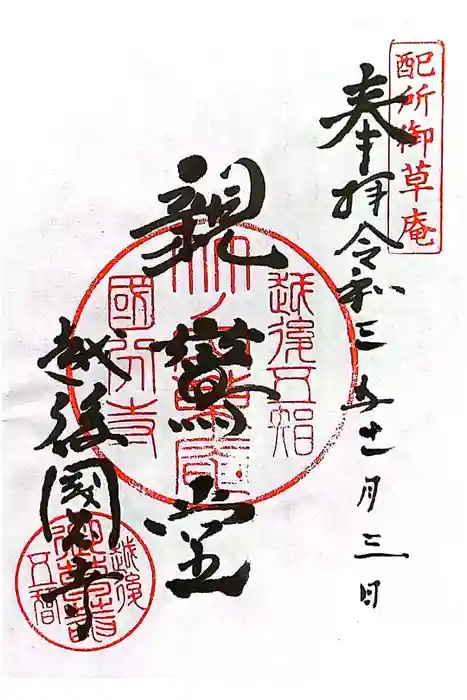 配所御草庵
奉拝令和三年十一月三日
越後五智
竹ノ内草庵
國分寺
親鸞堂
越後國分寺
越後
五智